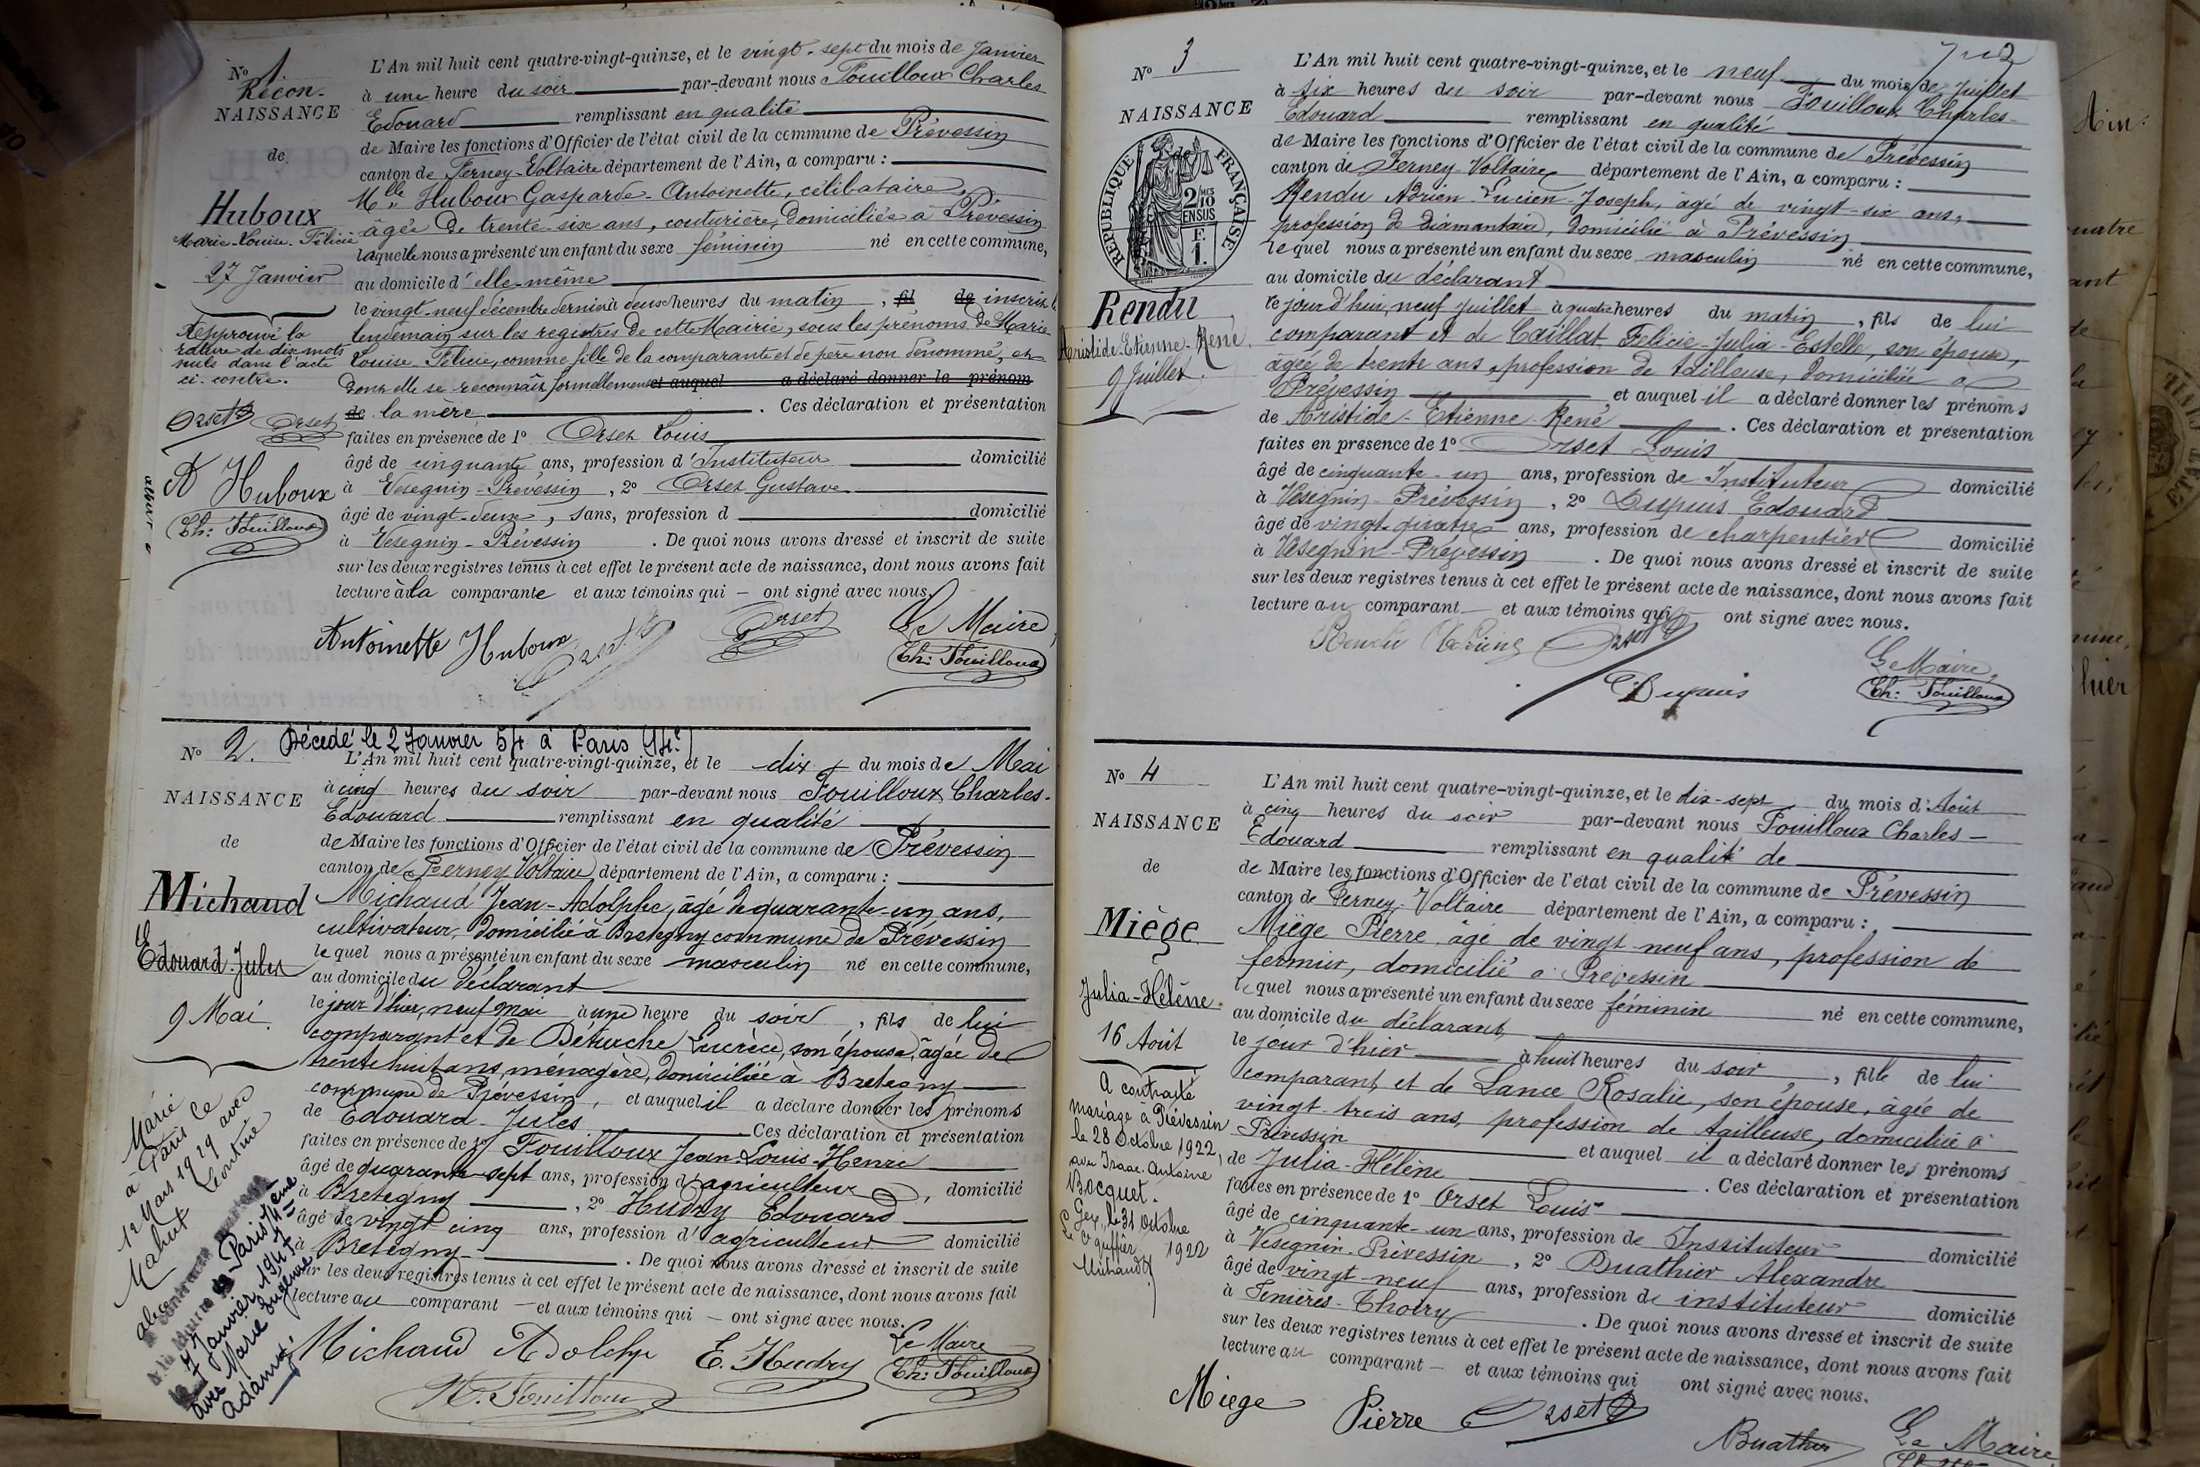 No 1.
Recon-
NAISSANCE
de
Huboux
Marie-Louise-Félicie
27 Janvier
Approuvé la
rature de dix mots
nuls dans l'acte
ci-contre.
Orset Orset
A Huboux
Ch: Fouilloux
L'An mil huit cent quatre-vingt-quinze, et le vingt-sept du mois de Janvier
à une heure du soir par-devant nous Fouilloux Charles
Edouard remplissant en qualité
de Maire les fonctions d'Officier de l'état civil de la commune de Prévessin
canton de Ferney-Voltaire département de l'Ain, a comparu :
Mlle Huboux Gasparde-Antoinette, célibataire,
âgée de trente-six ans, couturière, domiciliée à Prévessin
laquelle nous a présenté un enfant du sexe féminin né en cette commune,
au domicile d'elle-même
le vingt-neuf décembre dernier à deux heures du matin, fil de inscrit le
lendemain sur les registres de cette Mairie, sous les prénoms de Marie
Louise-Félicie, comme fille de la comparante et de père non dénommé, et
dont elle se reconnaît formellement et auquel a déclaré donner le prénom
de la mère. Ces déclaration et présentation
faites en présence de 1o Orset Louis
âgé de cinquante ans, profession d'Instituteur domicilié
à Vesegnin-Prévessin, 2o Orset Gustave
âgé de vingt-deux, sans, profession d domicilié
à Vesegnin-Prévessin. De quoi nous avons dressé et inscrit de suite
sur les deux registres tenus à cet effet le présent acte de naissance, dont nous avons fait
lecture à la comparante et aux témoins qui — ont signé avec nous.
Antoinette Huboux Orset Orset Le Maire,
Ch: Fouilloux
No 2. Décédé le 2 Janvier 54 à Paris 14e
NAISSANCE
de
Michaud
Edouard-Jules
9 Mai.
Marié
à Paris le
12 Mars 1929 avec
Léontine
Mahut
Paris 14eme
Janvier 1947
avec Marie Eugénie
Adam
L'An mil huit cent quatre-vingt-quinze, et le dix du mois de Mai
à cinq heures du soir par-devant nous Fouilloux Charles-
Edouard remplissant en qualité
de Maire les fonctions d'Officier de l'état civil de la commune de Prévessin
canton de Ferney Voltaire département de l'Ain, a comparu :
Michaud Jean-Adolphe, âgé de quarante-un ans,
cultivateur, domicilié à Bretegny commune de Prévessin
lequel nous a présenté un enfant du sexe masculin né en cette commune,
au domicile du déclarant
le jour d'hier, neuf mai à une heure du soir, fils de lui
comparant et de Détruche Lucrèce, son épouse, âgée de
trente huit ans, ménagère, domiciliée à Bretegny
commune de Prévessin, et auquel il a déclaré donner les prénoms
de Edouard-Jules Ces déclaration et présentation
faites en présence de 1o Fouilloux Jean-Louis-Henri
âgé de quarante-sept ans, profession d'agriculteur, domicilié
à Bretegny, 2o Hudry Edouard
âgé de vingt cinq ans, profession d'agriculteur domicilié
à Bretegny. De quoi nous avons dressé et inscrit de suite
sur les deux registres tenus à cet effet le présent acte de naissance, dont nous avons fait
lecture au comparant — et aux témoins qui — ont signé avec nous.
Michaud Adolphe E. Hudry Le Maire
H. Fouilloux Ch: Fouilloux
No 3
NAISSANCE
REPUBLIQUE FRANÇAISE
2/10
EN SUS
F.
1.
Rendu
Aristide-Etienne-René.
9 Juillet.
L'An mil huit cent quatre-vingt-quinze, et le neuf du mois de Juillet
à six heures du soir par-devant nous Fouilloux Charles-
Edouard remplissant en qualité
de Maire les fonctions d'Officier de l'état civil de la commune de Prévessin
canton de Ferney-Voltaire département de l'Ain, a comparu :
Rendu Adrien-Lucien-Joseph, âgé de vingt-six ans,
profession de diamantaire, domicilié à Prévessin
lequel nous a présenté un enfant du sexe masculin né en cette commune,
au domicile du déclarant
le jour d'hui, neuf juillet à quatre heures du matin, fils de lui
comparant et de Caillat Félicie-Julia-Estelle, son épouse,
âgée de trente ans, profession de tailleuse, domiciliée à
Prévessin et auquel il a déclaré donner les prénoms
de Aristide-Etienne-René. Ces déclaration et présentation
faites en prssence de 1o Orset Louis
âgé de cinquante-un ans, profession de Instituteur domicilié
à Vesegnin-Prévessin, 2o Dupuis Edouard
âgé de vingt-quatre ans, profession de charpentier domicilié
à Vesegnin-Prévessin. De quoi nous avons dressé et inscrit de suite
sur les deux registres tenus à cet effet le présent acte de naissance, dont nous avons fait
lecture au comparant — et aux témoins qui ont signé avec nous.
Rendu Adrien Orset Le Maire,
Dupuis Ch: Fouilloux
No 4
NAISSANCE
de
Miège
Julia-Hélène.
16 Août
A contracté
mariage à Prévessin
le 28 Octobre 1922,
avec Isaac-Antoine
Bocquet.
Gex, le 31 Octobre
1922
Le Greffier
Michaud
L'An mil huit cent quatre-vingt-quinze, et le dix-sept du mois d'Août
à cinq heures du soir par-devant nous Fouilloux Charles-
Edouard remplissant en qualité de
de Maire les fonctions d'Officier de l'état civil de la commune de Prévessin
canton de Ferney-Voltaire département de l'Ain, a comparu :
Miège Pierre, âgé de vingt-neuf ans, profession de
fermier, domicilié à Prévessin
lequel nous a présenté un enfant du sexe féminin né en cette commune,
au domicile du déclarant,
le jour d'hier à huit heures du soir, fille de lui
comparant, et de Lance Rosalie, son épouse, âgée de
vingt-trois ans, profession de tailleuse, domiciliée à
Prévessin et auquel il a déclaré donner les prénoms
de Julia-Hélène. Ces déclaration et présentation
faites en présence de 1o Orset Louis
âgé de cinquante-un ans, profession de Instituteur domicilié
à Vesegnin-Prévessin, 2o Buathier Alexandre
âgé de vingt-neuf ans, profession de instituteur domicilié
à Fenières-Thoiry. De quoi nous avons dressé et inscrit de suite
sur les deux registres tenus à cet effet le présent acte de naissance, dont nous avons fait
lecture au comparant — et aux témoins qui ont signé avec nous.
Miege Pierre Orset Buathier Le Maire